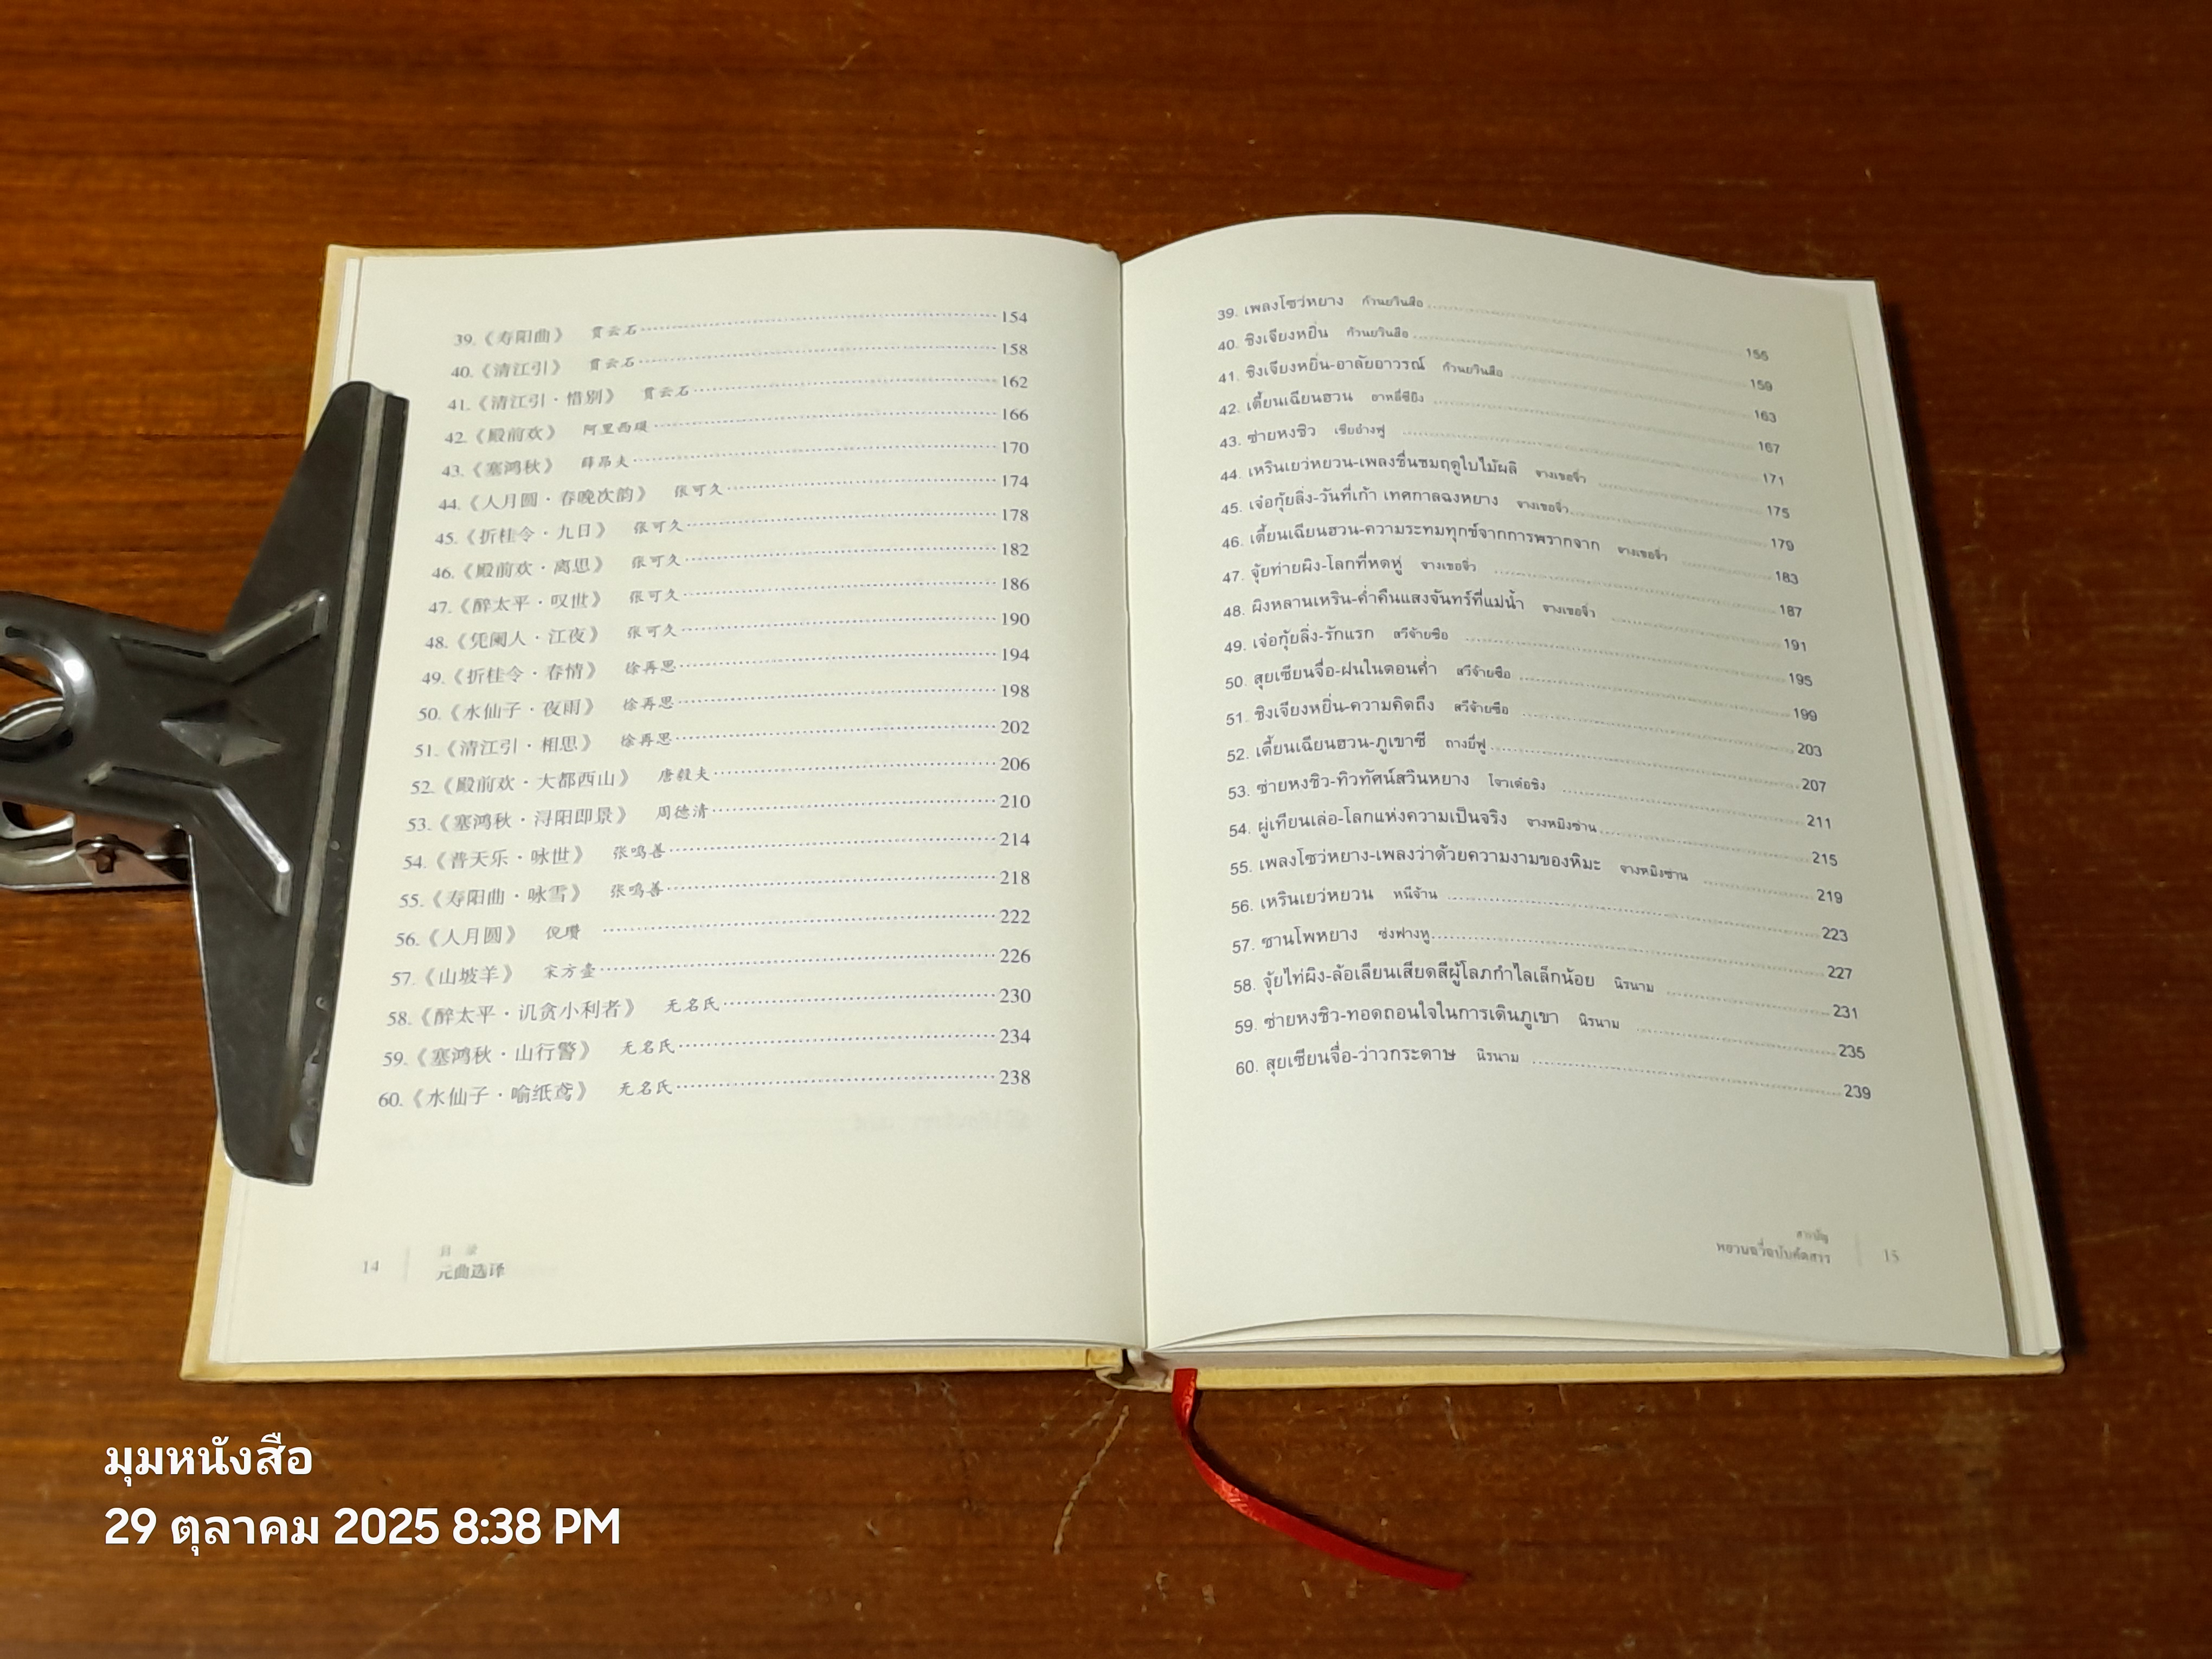 39.《寿阳曲》 贯云石 154
40.《清江引》 贯云石 158
41.《清江引·惜别》 贯云石 162
42.《殿前欢》 阿里西瑛 166
43.《塞鸿秋》 薛昂夫 170
44.《人月圆·春晚次韵》 张可久 174
45.《折桂令·九日》 张可久 178
46.《殿前欢·离思》 张可久 182
47.《醉太平·叹世》 张可久 186
48.《凭阑人·江夜》 张可久 190
49.《折桂令·春情》 徐再思 194
50.《水仙子·夜雨》 徐再思 198
51.《清江引·相思》 徐再思 202
52.《殿前欢·大都西山》 唐毅夫 206
53.《塞鸿秋·浔阳即景》 周德清 210
54.《普天乐·咏世》 张鸣善 214
55.《寿阳曲·咏雪》 张鸣善 218
56.《人月圆》 倪瓒 222
57.《山坡羊》 宋方壶 226
58.《醉太平·讥贪小利者》 无名氏 230
59.《塞鸿秋·山行警》 无名氏 234
60.《水仙子·喻纸鸢》 无名氏 238
14
目 录
元曲选译
39. เพลงโซว่หยาง ก้วนยวินสือ 155
40. ชิงเจียงหยิ่น ก้วนยวินสือ 159
41. ชิงเจียงหยิ่น-อาลัยอาวรณ์ ก้วนยวินสือ 163
42. เตี้ยนเฉียนฮวน อาหลี่ซีอิง 167
43. ซ่ายหงชิว เซียอ๋างฟู 171
44. เหรินเยว่หยวน-เพลงชื่นชมฤดูใบไม้ผลิ จางเขอจิ่ว 175
45. เจ๋อกุ้ยลิ่ง-วันที่เก้า เทศกาลฉงหยาง จางเขอจิ่ว 179
46. เตี้ยนเฉียนฮวน-ความระทมทุกข์จากการพรากจาก จางเขอจิ่ว 183
47. จุ้ยท่ายผิง-โลกที่หดหู่ จางเขอจิ่ว 187
48. ผิงหลานเหริน-ค่ำคืนแสงจันทร์ที่แม่น้ำ จางเขอจิ่ว 191
49. เจ๋อกุ้ยลิ่ง-รักแรก สวีจ้ายซือ 195
50. สุยเซียนจื่อ-ฝนในตอนค่ำ สวีจ้ายซือ 199
51. ชิงเจียงหยิ่น-ความคิดถึง สวีจ้ายซือ 203
52. เตี้ยนเฉียนฮวน-ภูเขาซี ถางยี่ฟู 207
53. ซ่ายหงชิว-ทิวทัศน์สวินหยาง โจวเต๋อชิง 211
54. ผู่เทียนเล่อ-โลกแห่งความเป็นจริง จางหมิงซ่าน 215
55. เพลงโซว่หยาง-เพลงว่าด้วยความงามของหิมะ จางหมิงซ่าน 219
56. เหรินเยว่หยวน หนีจ้าน 223
57. ซานโพหยาง ซ่งฟางหู 227
58. จุ้ยไท่ผิง-ล้อเลียนเสียดสีผู้โลภกำไลเล็กน้อย นิรนาม 231
59. ซ่ายหงชิว-ทอดถอนใจในการเดินภูเขา นิรนาม 235
60. สุยเซียนจื่อ-ว่าวกระดาษ นิรนาม 239
สารบัญ
หยวนฉวี่ฉบับคัดสรร
15
มุมหนังสือ
29 ตุลาคม 2025 8:38 PM